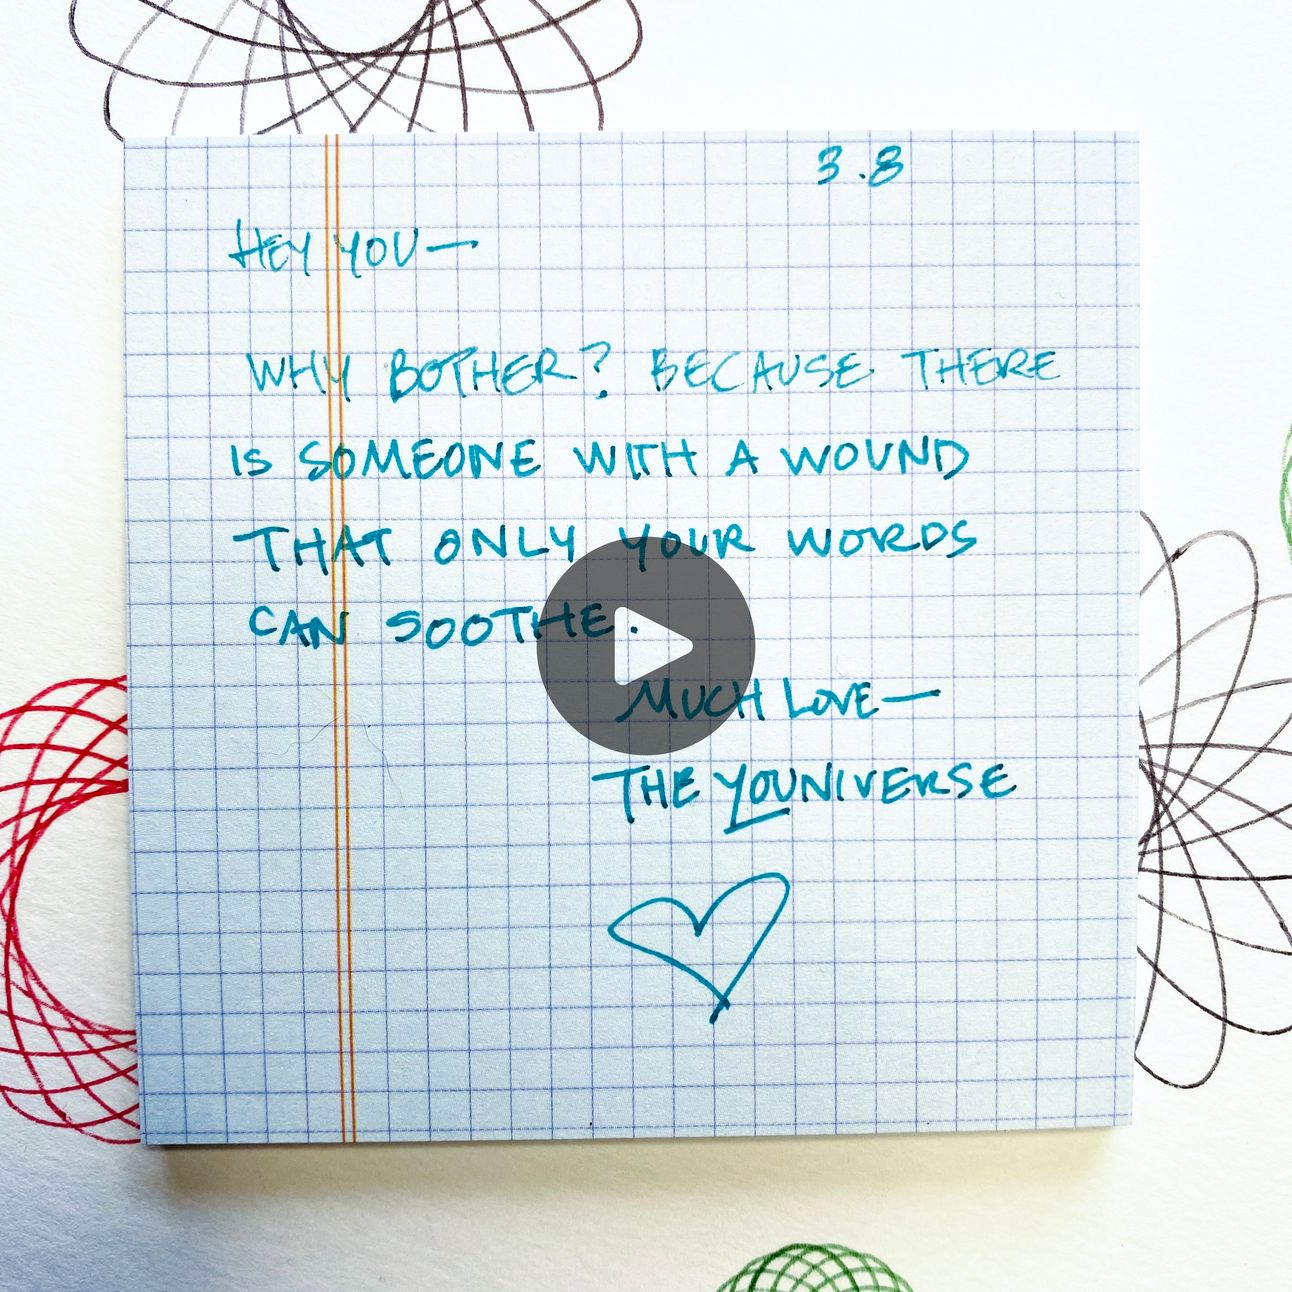 3.8
HEY YOU—
WHY BOTHER? BECAUSE THERE
IS SOMEONE WITH A WOUND
THAT ONLY YOUR WORDS
CAN SOOTHE.
MUCH LOVE—
THE YOUNIVERSE